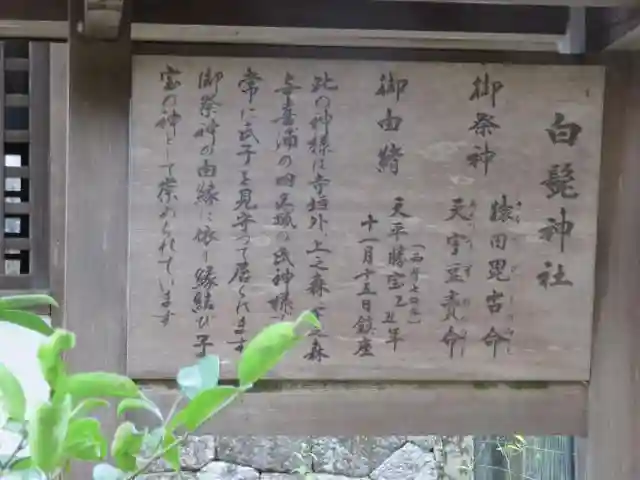 白髭神社
御祭神
猿田毘古命
天宇豆責命
御由緒
天平勝宝乙丑年
十一月十五日鎮座
此の神様は寺垣外、上之森、下之森
与喜浦の四区域の氏神様で
常に氏子を見守って居られます
御祭神の由縁に依り縁結び 子
宝の神として崇められています